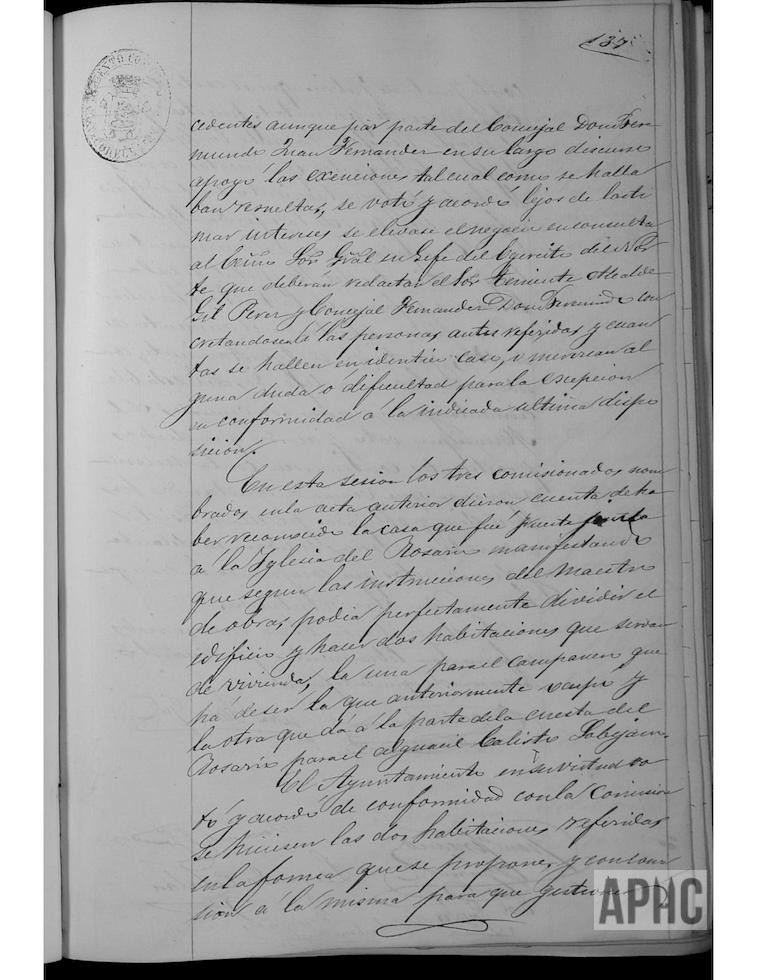 137
cedentes aunque por parte del Concejal Don Fer
mundo Juan Fernandez en su largo discurso
apoyó las exenciones tal cual como se halla
ban resueltas, se votó y acordó lejos de lasti
mar intereses se elevase el negocio en consulta
al Exmo Sor Gral en Gefe del Egercito del Nor
te que deberán redactar el Sor Teniente Alcalde
Gil Perez y Concejal Fernandez Don Fermundo con
cretandose á las personas antes referidas y cuan
tas se hallen en identico caso, ó merezcan al
guna duda o dificultad para la excepcion
en conformidad á la indicada ultima dispo
sicion.
En esta sesion los tres comisionados nom
brados en la acta anterior dieron cuenta de ha
ber reconocido la casa que fué
a la Yglesia del Rosario manifestando
que segun las instrucciones del Maestro
de obras, podia perfectamente dividir el
edificio y hacer dos habitaciones que servan
de vivienda, la una para el campanero que
há de ser la que anteriormente ocupó y
la otra que dá á la parte de la cuesta del
Rosario para el alguacil Calisto
El Ayuntamiento en su virtud vo
tó y acordó de conformidad con la Comision
se hiciesen las dos habitaciones referidas
en la forma que se propone, y con comi
sion a la misma para que gestione
APHC